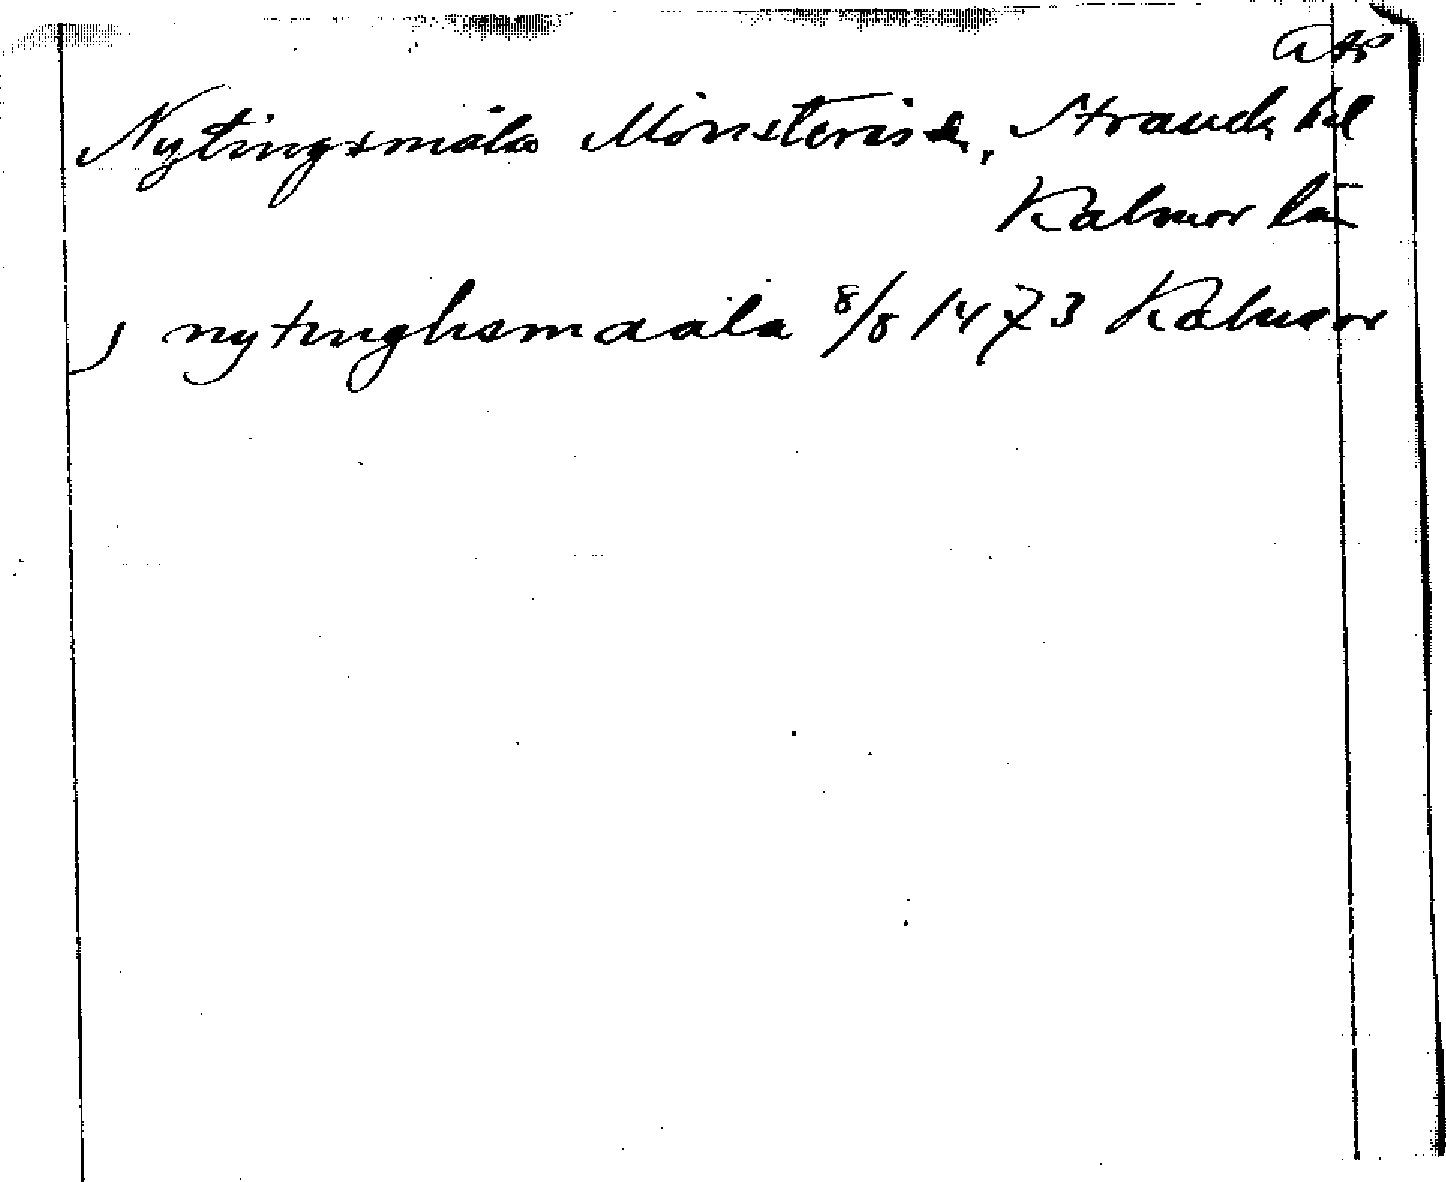 Nytingsmåla Mönsterås sn, Stranda hd
Kalmar län
j nytinghsmaala 8/8 1473 Kalmar